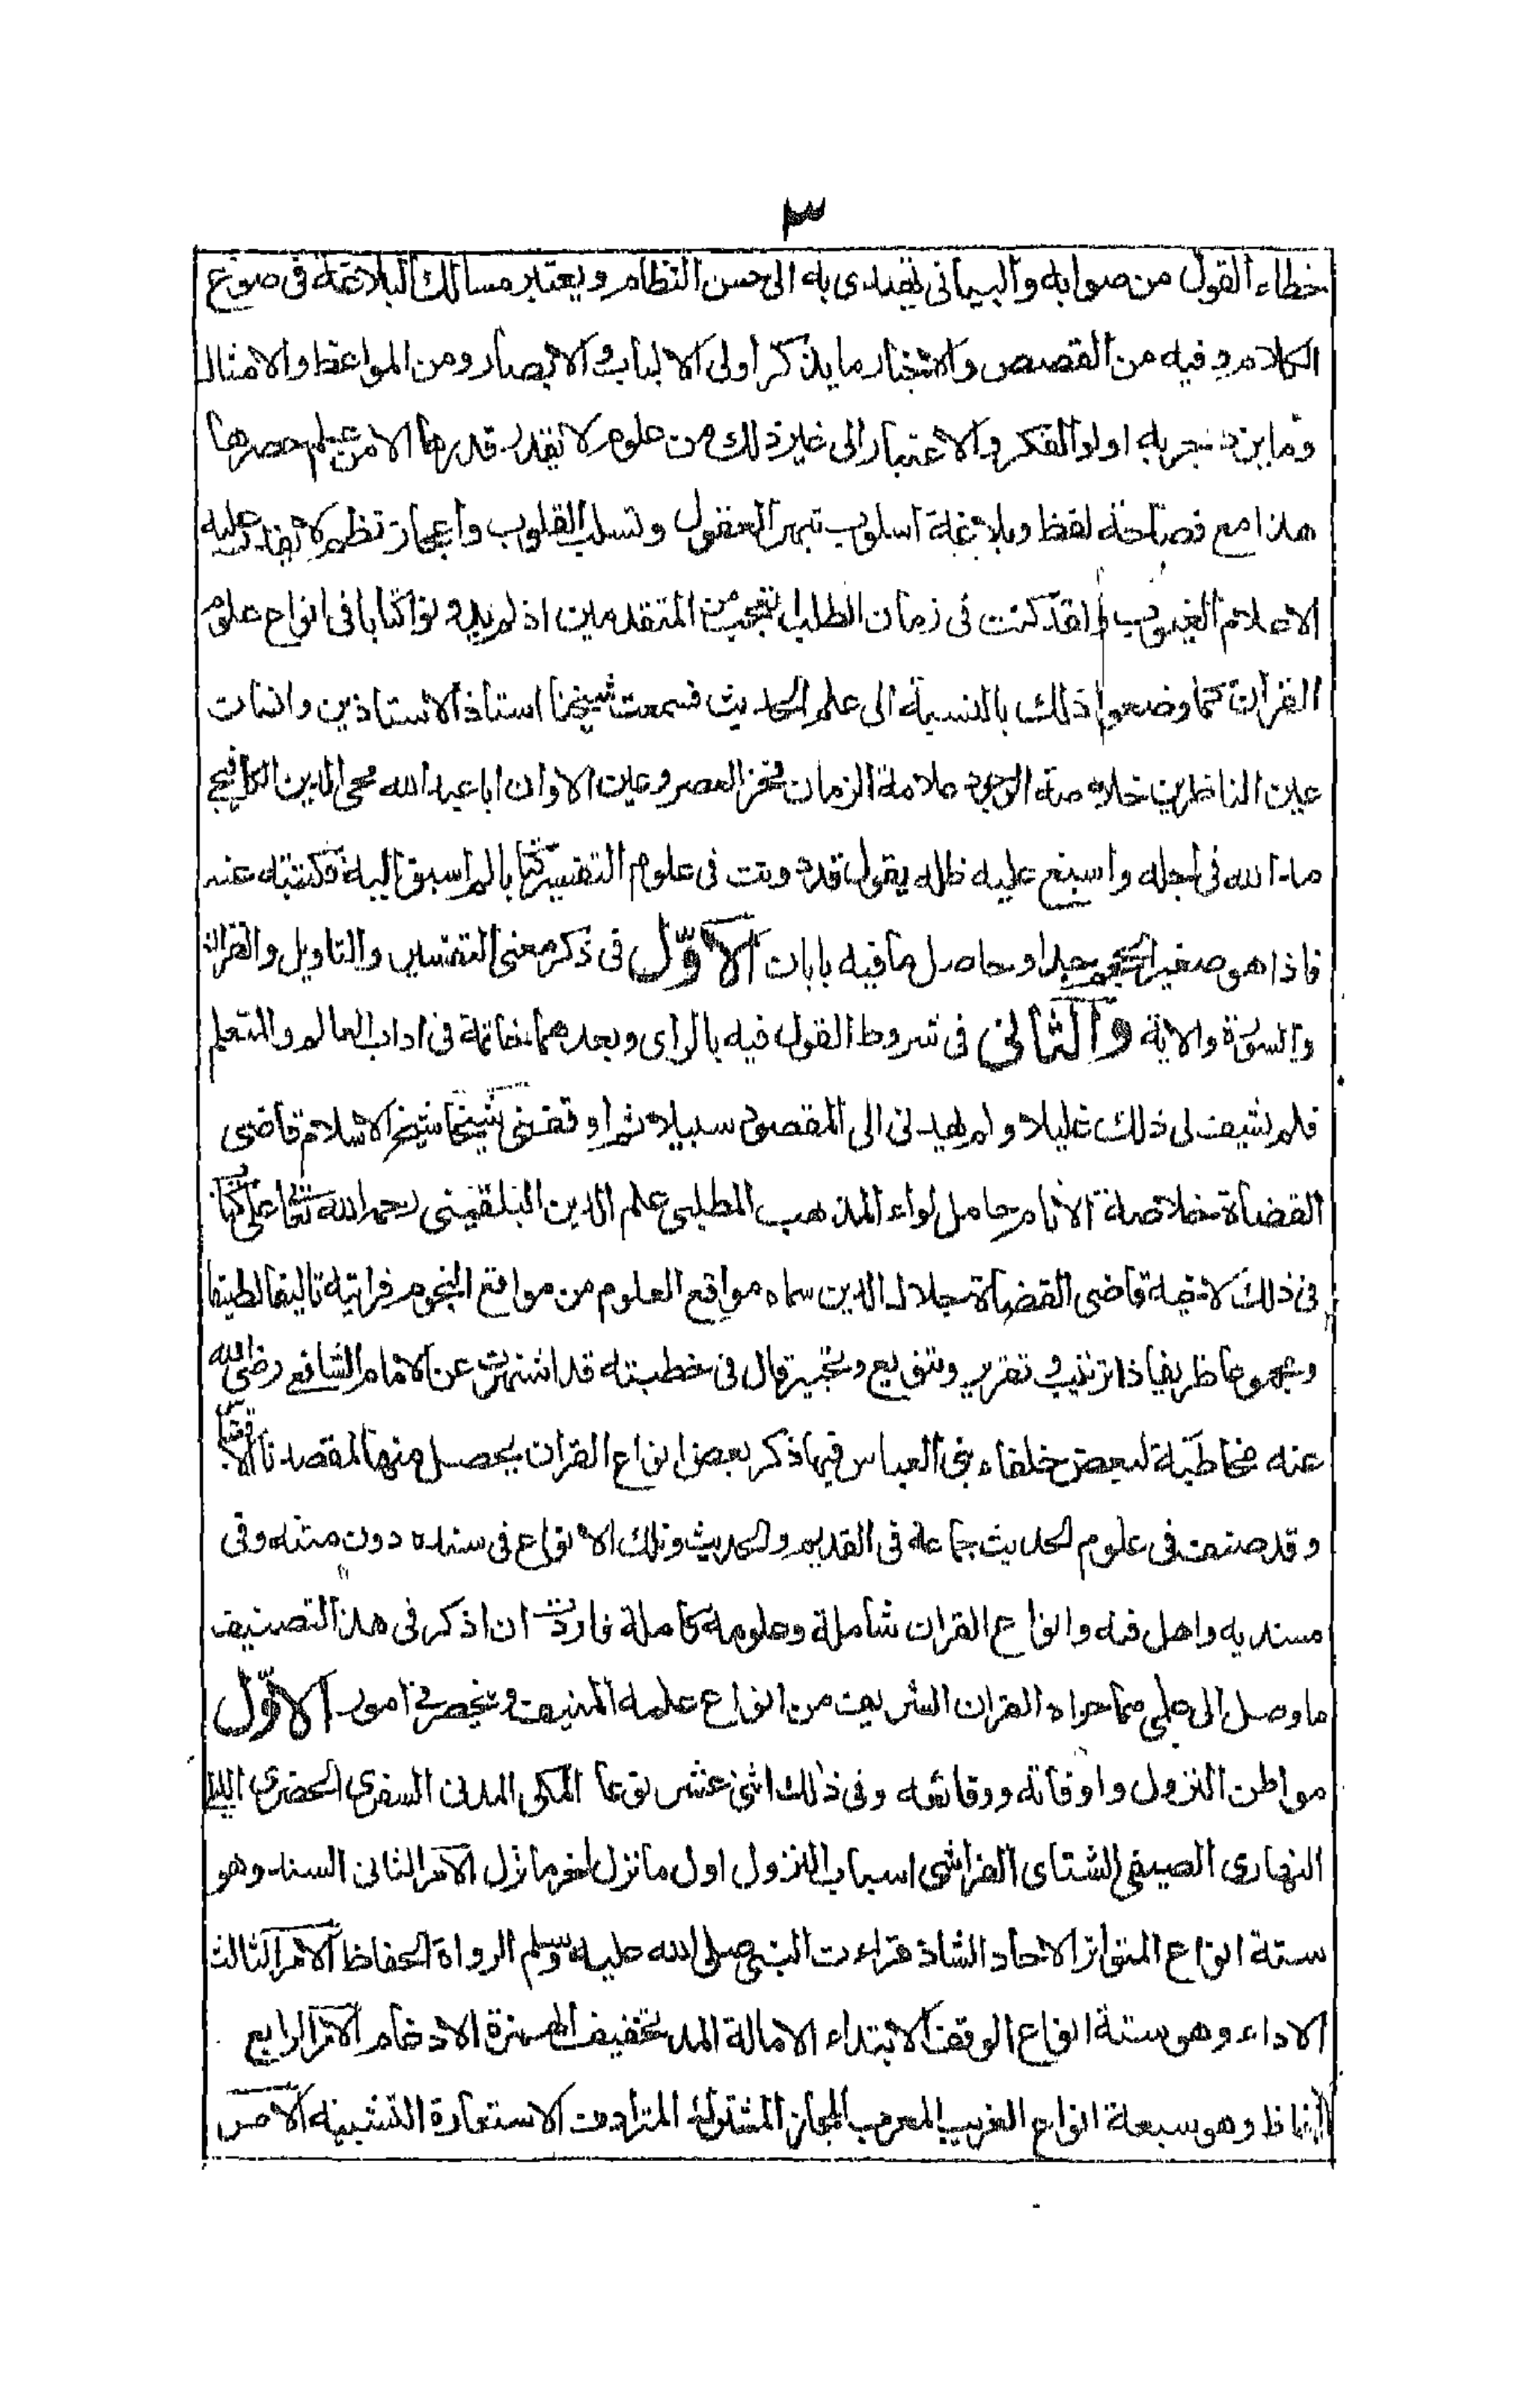 ٣
خطاء القول من صوابه والبياني يهتدى به الى حسن النظام ويعتبر مسالك البلاغة فى صوغ
الكلام وفيه من القصص والاخبار ما يذكر اولى الالباب والابصار ومن المواعظ والامثال
وما يزدجر به اولوا الفكر والاعتبار الى غير ذلك من علوم لا يقدر قدرها الا من علم حصرها
هذا مع فصاحة لفظ وبلاغة اسلوب تبهر العقول وتسلب القلوب واعجاز نظم لا يقدر عليه
الا علام الغيوب ولقد كنت فى زمان الطلب اتعجب من المتقدمين اذ لم يدونوا كتابا فى انواع علوم
القرآن كما وضعوا ذلك بالنسبة الى علم الحديث فسمعت شيخنا استاذ الاستاذين وانسان
عين الناظرين خلاصة الوجود علامة الزمان فخر العصر وعين الاوان ابا عبد الله محى الدين الكافيجى
مد الله فى اجله واسبغ عليه ظله يقول قد دونت فى علوم التفسير كتابا لم اسبق اليه فكتبته عنه
فاذا هو صغير الحجم جدا وحاصل ما فيه بابان الاوّل فى ذكر معنى التفسير والتاويل والقران
والسورة والاية والثانى فى شروط القول فيه بالراى وبعدهما خاتمة فى اداب العالم والمتعلم
فلم يشف لى ذلك غليلا ولم يهدنى الى المقصود سبيلا ثم اوقفنى شيخنا شيخ الاسلام قاضى
القضاة خلاصة الانام حامل لواء المذهب المطلبى علم الدين البلقينى رحمه الله تعالى على كتاب
فى ذلك لاخيه قاضى القضاة جلال الدين سماه مواقع العلوم من مواقع النجوم فرايته تاليفا لطيفا
ومجموعا ظريفا ذا ترتيب وتقرير وتنويع وتحبير قال فى خطبته قد اشتهرت عن الامام الشافعى رضى الله
عنه مخاطبة لبعض خلفاء بنى العباس فيها ذكر بعض انواع القران يحصل منها لمقصدنا الاقتباس
وقد صنف فى علوم الحديث جماعة فى القديم والحديث وتلك الانواع فى سنده دون متنه وفى
مسنديه واهل فنه وانواع القران شاملة وعلومه كاملة فاردت ان اذكر فى هذا التصنيف
ما وصل الى علمى مما حواه القران الشريف من انواع علمه المنيف وينحصر فى امور الاوّل
مواطن النزول واوقاته ووقائعه وفى ذلك اثنى عشر نوعا المكى المدنى السفرى الحضرى الليلى
النهارى الصيفى الشتاى الفراشى اسباب النزول اول ما نزل اخر ما نزل الامر الثانى السند وهو
ستة انواع المتواتر الاحاد الشاذ قراءت النبى صلى الله عليه وسلم الرواة الحفاظ الامر الثالث
الاداء وهو ستة انواع الوقف الابتداء الامالة المد تخفيف الهمزة الادغام الامر الرابع
الفاظ وهو سبعة انواع الغريب المعرب المجاز المشترك المترادف الاستعارة التشبيه الامر